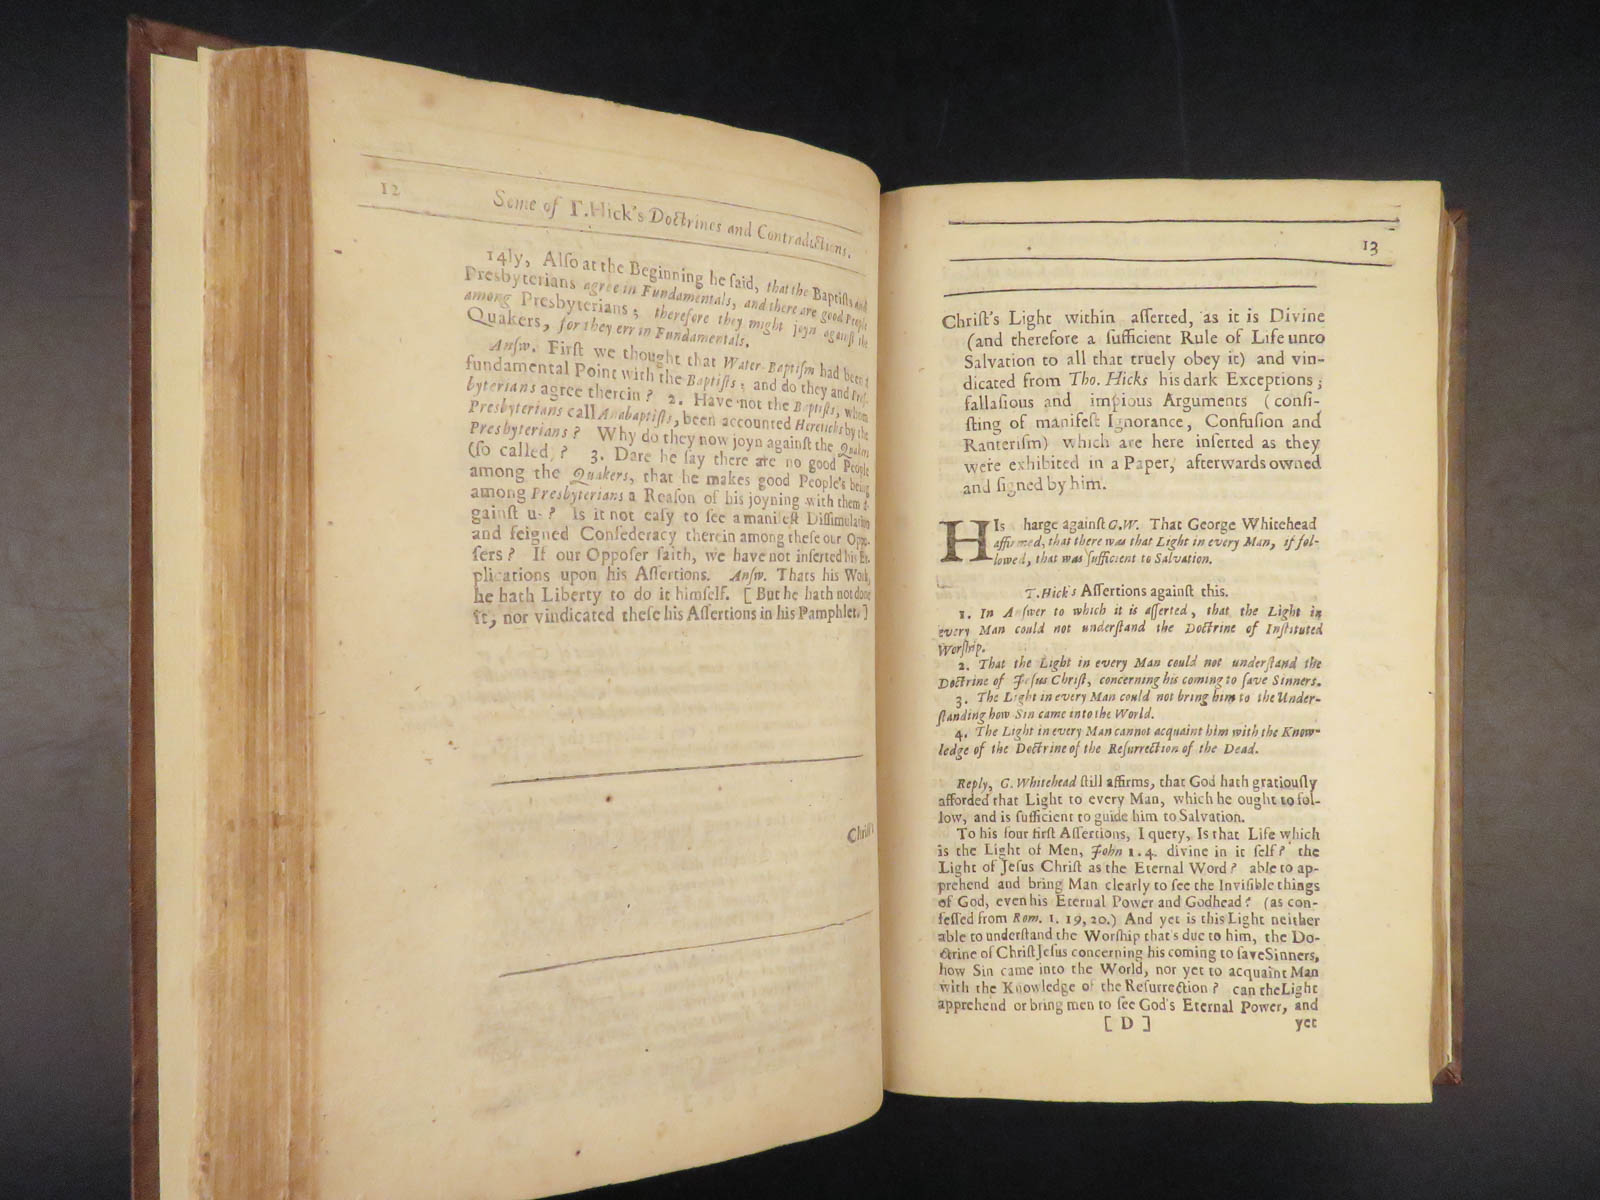 12
Some of T. Hick's Doctrines and Contradictions.
14ly, Alſo at the Beginning he ſaid, that the Baptiſts and
Presbyterians agree in Fundamentals, and there are good People
among Presbyterians; therefore they might joyn againſt the
Quakers, for they err in Fundamentals.
Anſw. Firſt we thought that Water-Baptiſm had been a
fundamental Point with the Baptiſts; and do they and Preſ-
byterians agree therein? 2. Have not the Baptiſts, whom
Presbyterians call Anabaptiſts, been accounted Hereticks by the
Presbyterians? Why do they now joyn againſt the Quakers
(ſo called)? 3. Dare he ſay there are no good People
among the Quakers, that he makes good People's being
among Presbyterians a Reaſon of his joyning with them a-
gainſt us? Is it not eaſy to ſee a manifeſt Diſſimulation
and feigned Confederacy therein among theſe our Oppo-
ſers? If our Oppoſer ſaith, we have not inſerted his Ex-
plications upon his Aſſertions. Anſw. Thats his Work,
he hath Liberty to do it himſelf. [ But he hath not done
it, nor vindicated theſe his Aſſertions in his Pamphlet. ]
Chriſt's
13
Chriſt's Light within aſſerted, as it is Divine
(and therefore a ſufficient Rule of Life unto
Salvation to all that truely obey it) and vin-
dicated from Tho. Hicks his dark Exceptions;
fallaſious and impious Arguments (conſi-
ſting of manifeſt Ignorance, Confuſion and
Ranteriſm) which are here inſerted as they
were exhibited in a Paper, afterwards owned
and ſigned by him.
HIs harge againſt G.W. That George Whitehead
affirmed, that there was that Light in every Man, if fol-
lowed, that was ſufficient to Salvation.
T. Hick's Aſſertions againſt this.
1. In Anſwer to which it is aſſerted, that the Light in
every Man could not underſtand the Doctrine of Inſtituted
Worſhip.
2. That the Light in every Man could not underſtand the
Doctrine of Jeſus Chriſt, concerning his coming to ſave Sinners.
3. The Light in every Man could not bring him to the Under-
ſtanding how Sin came into the World.
4. The Light in every Man cannot acquaint him with the Know-
ledge of the Doctrine of the Reſurrection of the Dead.
Reply, G. Whitehead ſtill affirms, that God hath gratiouſly
afforded that Light to every Man, which he ought to fol-
low, and is ſufficient to guide him to Salvation.
To his four firſt Aſſertions, I query, Is that Life which
is the Light of Men, John 1.4. divine in it ſelf? the
Light of Jeſus Chriſt as the Eternal Word? able to ap-
prehend and bring Man clearly to ſee the Inviſible things
of God, even his Eternal Power and Godhead? (as con-
feſſed from Rom. 1. 19, 20.) And yet is this Light neither
able to underſtand the Worſhip that's due to him, the Do-
ctrine of Chriſt Jeſus concerning his coming to ſave Sinners,
how Sin came into the World, nor yet to acquaint Man
with the Knowledge of the Reſurrection? can the Light
apprehend or bring men to ſee God's Eternal Power, and
[ D ]
yet